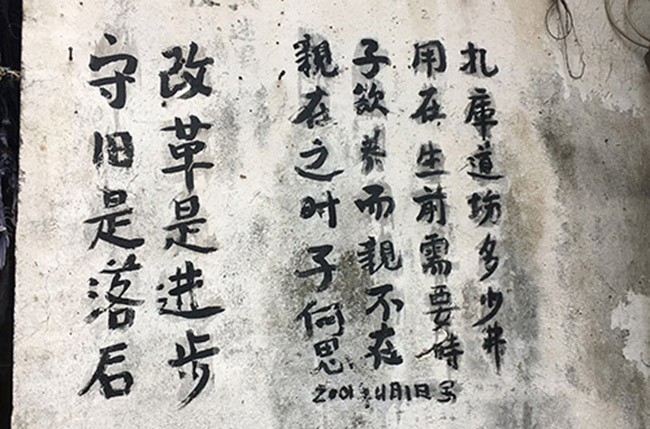 扎庫道场多少
用在生前需要時
子欲养而親不在
親在之时子何思
2001年4月1日写
改革是進步
守旧是落后